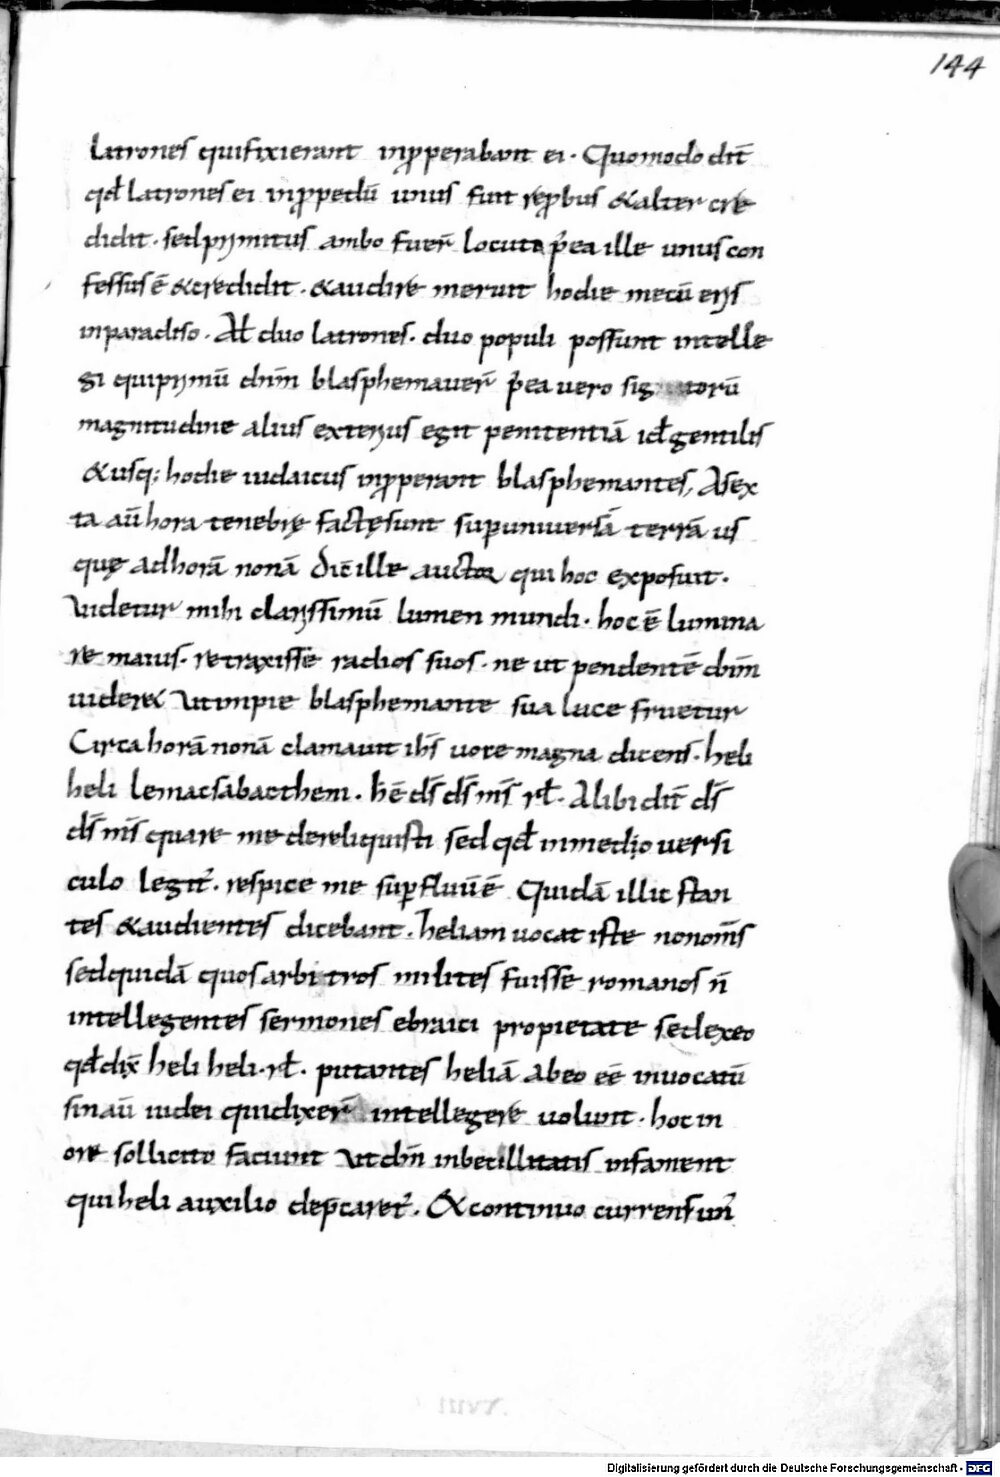 144
latrones quifixierant inꝓperabant ei · Quomodo dic̄
qd̄ latrones ei inꝓpedū unus fuit reꝓbus &alter cre
didit · sed primitus ambo fuer̄ locuta p̄ea ille unus con
fessus ē &credidit · &audire meruit hodie mecū eris
inparadiso · Al̄ duo latrones · duo populi possunt intelle
gi qui primū dn̄m blasphemauer̄ p̄ea uero sig torū
magnitudine alius exterius egit penitentiā id̄ gentilis
&usq; hodie iudaicus inꝓperant blasphemantes, Asex
ta aū hora tenebrę factę sunt sup uniuersā terrā us
quę adhorā nonā Dic̄ ille auctor qui hoc exposuit ·
Videtur mihi clarissimū lumen mundi · hoc ē lumina
re maius · retraxisse radios suos · ne ut pendentē dn̄m
uider& Vt impie blasphemante sua luce fruetur
Circa horā nonā clamauit ih̄s uoce magna dicens · heli
heli lemacsabacthem · h̄ ē ds̄ ds̄ ms̄ rl̄ · Alibi dic̄ ds̄
ds̄ ms̄ quare me dereliquisti sed qd̄ inmedio uersi
culo legit̄ · respice me sup̄fluū ē Quidā illic stan
tes &audientes dicebant · heliam uocat iste non om̄s
sed quidā quos arbitros milites fuisse romanos n̄
intellegentes sermones ebraici propietate sed exeo
qd̄ dix̄ heli heli · rl̄ · putantes heliā abeo eē inuocatū
sin aū iudei qui dixer̄ intellegere uolunt · hoc in
ore sollicito faciunt Vt dn̄m inbecillitatis infament
qui heli auxilio dep̄caret̄ · &continuo currens un̄
Digitalisierung gefördert durch die Deutsche Forschungsgemeinschaft - DFG